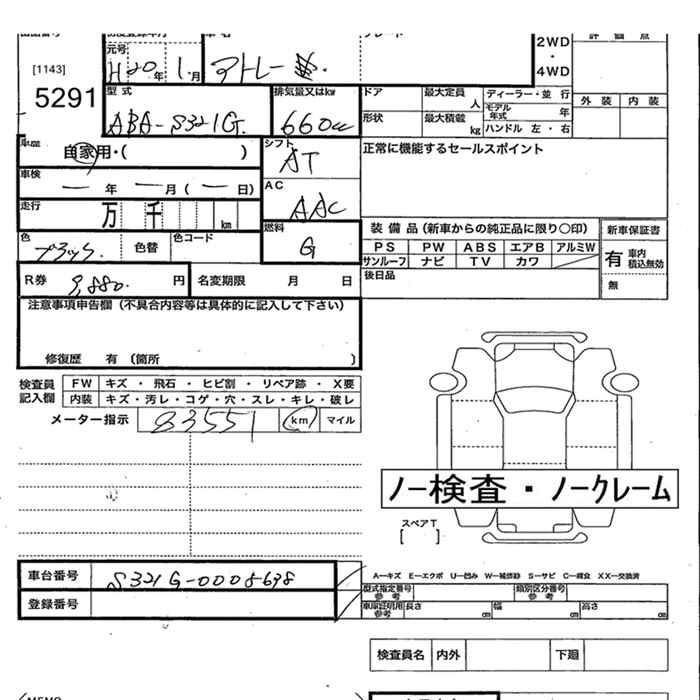 元号
H20年 1月 アトレー
2WD
・
4WD
[1143]
5291
型式
ABA-S321G
排気量又はkw
660cc
ドア
最大定員
人
ディーラー・並 行
モデル
年式
年
外 装 内 装
形状
最大積載
kg
ハンドル 左・右
自家用・( )
シフト
AT
正常に機能するセールスポイント
車検
— 年 — 月 ( — 日)
AC
AAC
走行
万 千 km
燃料
G
装 備 品 (新車からの純正品に限り〇印)
新車保証書
色
ブラック
色替
色コード
PS PW ABS エアB アルミW
サンルーフ ナビ TV カワ
有 車内
積込無効
無
R券 9,880. 円
名変期限 月 日
後日品
注意事項申告欄 (不具合内容等は具体的に記入して下さい)
修復歴 有 (箇所 )
検査員
記入欄
FW キズ ・ 飛石 ・ ヒビ割 ・ リペア跡 ・ X要
内装 キズ・汚レ・コゲ・穴・スレ・キレ・破レ
メーター指示 83551 km マイル
ノー検査・ノークレーム
スペアT
[ ]
車台番号 S321G-0005638
登録番号
A−キズ E−エクボ U−凹み W−補修跡 S−サビ C−腐食 XX−交換済
型式指定番号
参考
類別区分番号
参考
車庫証明用
参考
長さ ㎝ 幅 ㎝ 高さ ㎝
検査員名 内外 下廻
MEMO